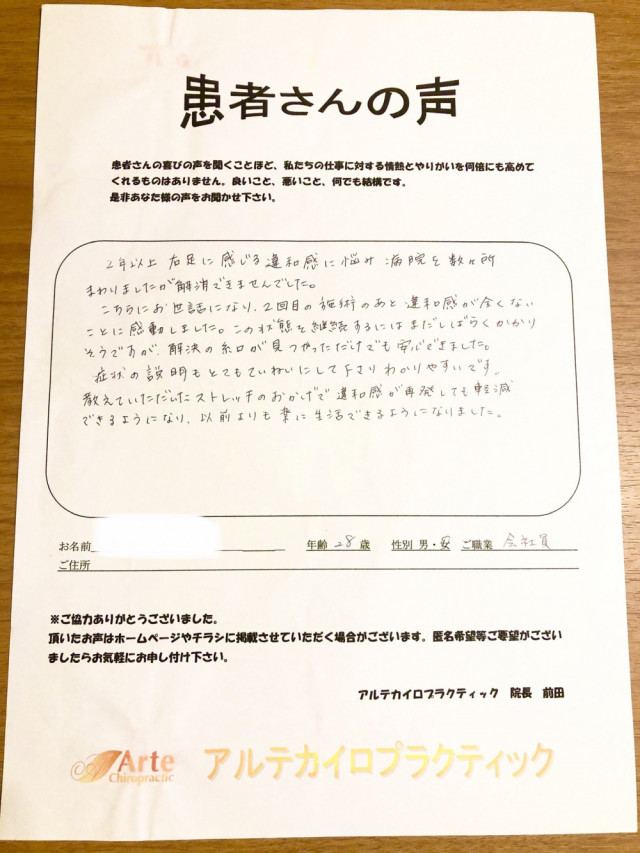 患者さんの声
患者さんの喜びの声を聞くことほど、私たちの仕事に対する情熱とやりがいを何倍にも高めて
くれるものはありません。良いこと、悪いこと、何でも結構です。
是非あなた様の声をお聞かせ下さい。
2年以上 右足に感じる違和感に悩み 病院を数ヶ所
まわりましたが解消できませんでした。
こちらにお世話になり、2回目の施術のあと違和感が全くない
ことに感動しました。この状態を継続するにはまだしばらくかかり
そうですが、解決の糸口が見つかっただけでも安心できました。
症状の説明もとてもていねいにして下さりわかりやすいです。
教えていただいたストレッチのおかげで違和感が再発しても軽減
できるようになり、以前よりも楽に生活できるようになりました。
お名前 年齢 28 歳 性別 男・女 ご職業 会社員
ご住所
※ご協力ありがとうございました。
頂いたお声はホームページやチラシに掲載させていただく場合がございます。匿名希望等ご要望がござい
ましたらお気軽にお申し付け下さい。
アルテカイロプラクティック 院長 前田
Arte
Chiropractic
アルテカイロプラクティック